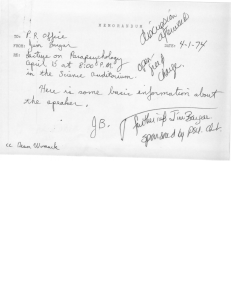 MEMORANDUM
discussion
afterward
TO: P.R. Office
FROM: Jim
DATE: 4-1-74
RE: Lecture on Parapsychology
April 15 at 8:00 P.M.
in the Science Auditorium.
open
charge.
Here is some basic information about
the speaker.
J.B.
Jim
sponsored by
cc Dean Womack